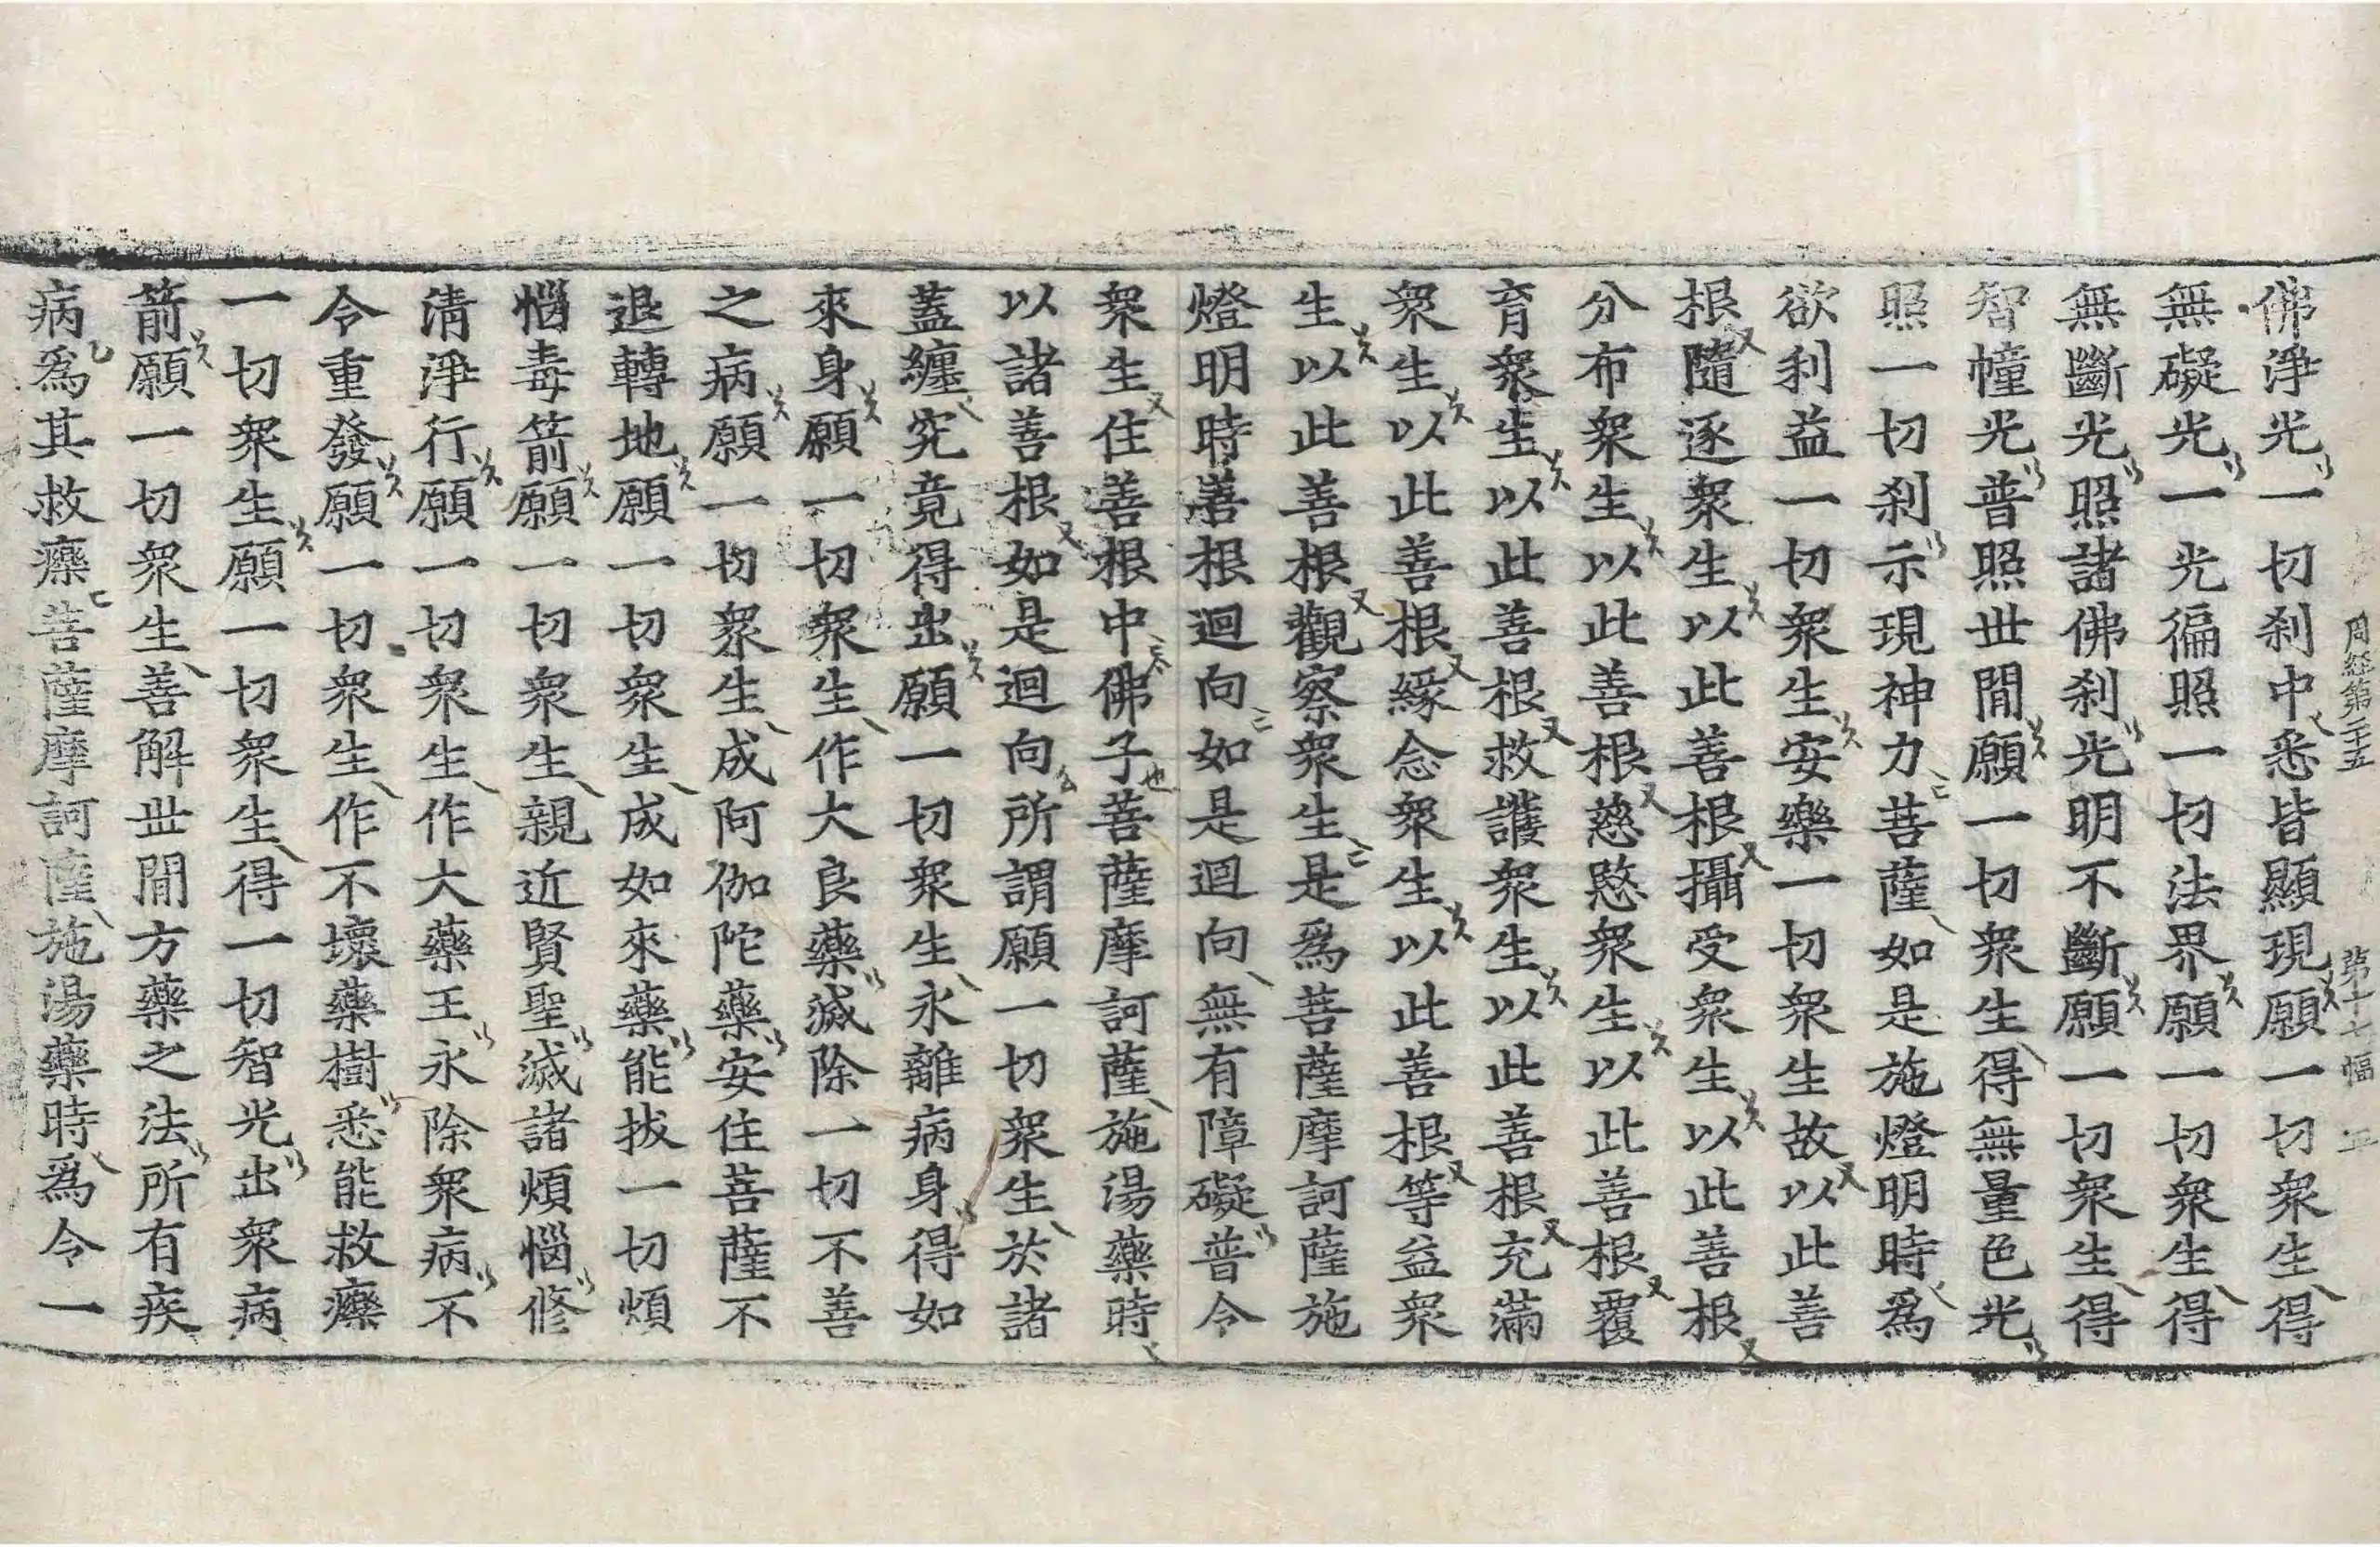 周經第二十五　第十七幅
佛淨光一切刹中悉皆顯現願一切衆生得
無礙光一光徧照一切法界願一切衆生得
無斷光照諸佛刹光明不斷願一切衆生得
智幢光普照世閒願一切衆生得無量色光
照一切刹示現神力菩薩如是施燈明時爲
欲利益一切衆生安樂一切衆生故以此善
根隨逐衆生以此善根攝受衆生以此善根
分布衆生以此善根慈愍衆生以此善根覆
育衆生以此善根救護衆生以此善根充滿
衆生以此善根緣念衆生以此善根等益衆
生以此善根觀察衆生是爲菩薩摩訶薩施
燈明時善根迴向如是迴向無有障礙普令
衆生住善根中佛子菩薩摩訶薩施湯藥時
以諸善根如是迴向所謂願一切衆生於諸
蓋纏究竟得出願一切衆生永離病身得如
來身願一切衆生作大良藥滅除一切不善
之病願一切衆生成阿伽陀藥安住菩薩不
退轉地願一切衆生成如來藥能拔一切煩
惱毒箭願一切衆生親近賢聖滅諸煩惱修
淸淨行願一切衆生作大藥王永除衆病不
令重發願一切衆生作不壞藥樹悉能救療
一切衆生願一切衆生得一切智光出衆病
箭願一切衆生善解世閒方藥之法所有疾
病爲其救療菩薩摩訶薩施湯藥時爲令一